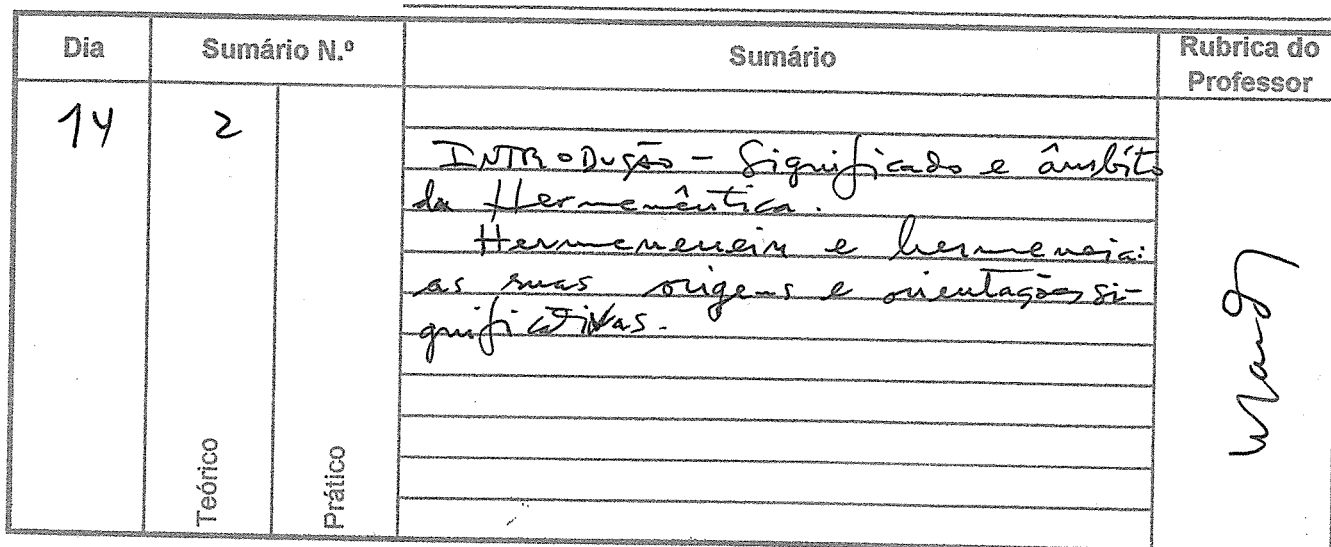 Dia Sumário N.º Sumário Rubrica do Professor
14 2
INTRODUÇÃO - Significado e âmbito
da Hermenêutica.
Hermeneuein e hermeneia:
as suas origens e orientações si-
gnificativas.
Teórico Prático